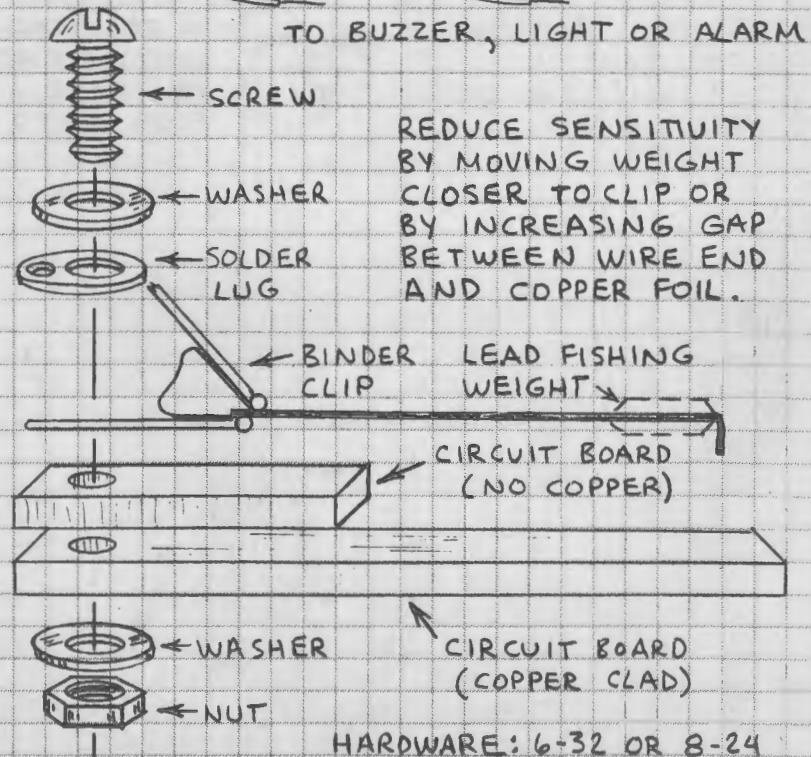 TO BUZZER, LIGHT OR ALARM
SCREW
REDUCE SENSITIVITY
BY MOVING WEIGHT
CLOSER TO CLIP OR
BY INCREASING GAP
BETWEEN WIRE END
AND COPPER FOIL.
WASHER
SOLDER
LUG
BINDER
CLIP
LEAD FISHING
WEIGHT
CIRCUIT BOARD
(NO COPPER)
WASHER
CIRCUIT BOARD
(COPPER CLAD)
NUT
HARDWARE: 6-32 OR 8-24